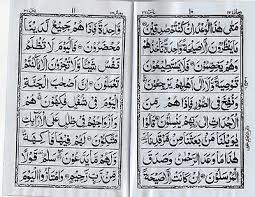 ١٠
مَتٰى هٰذَا الْوَعْدُ اِنْ كُنْتُمْ صٰدِقِيْنَ ۝
مَا يَنْظُرُوْنَ اِلَّا صَيْحَةً وَّاحِدَةً
تَاْخُذُهُمْ وَهُمْ يَخِصِّمُوْنَ ۝ فَلَا يَسْتَطِيْعُوْنَ
تَوْصِيَةً وَّلَاۤ اِلٰۤى اَهْلِهِمْ يَرْجِعُوْنَ ۝
وَنُفِخَ فِى الصُّوْرِ فَاِذَا هُمْ مِّنَ
الْاَجْدَاثِ اِلٰى رَبِّهِمْ يَنْسِلُوْنَ ۝ قَالُوْا
يٰوَيْلَنَا مَنْۢ بَعَثَنَا مِنْ مَّرْقَدِنَا
هٰذَا مَا وَعَدَ الرَّحْمٰنُ وَصَدَقَ
الْمُرْسَلُوْنَ ۝ اِنْ كَانَتْ اِلَّا صَيْحَةً
١١
وَّاحِدَةً فَاِذَا هُمْ جَمِيْعٌ لَّدَيْنَا
مُحْضَرُوْنَ ۝ فَالْيَوْمَ لَا تُظْلَمُ
نَفْسٌ شَيْـًٔا وَّلَا تُجْزَوْنَ اِلَّا مَا كُنْتُمْ
تَعْمَلُوْنَ ۝ اِنَّ اَصْحٰبَ الْجَنَّةِ
الْيَوْمَ فِىْ شُغُلٍ فٰكِهُوْنَ ۝ هُمْ
وَاَزْوَاجُهُمْ فِىْ ظِلٰلٍ عَلَى الْاَرَآئِكِ
مُتَّكِـُٔوْنَ ۝ لَهُمْ فِيْهَا فَاكِهَةٌ
وَّلَهُمْ مَّا يَدَّعُوْنَ ۝ سَلٰمٌ قَوْلًا
مِّنْ رَّبٍّ رَّحِيْمٍ ۝ وَامْتَازُوا الْيَوْمَ